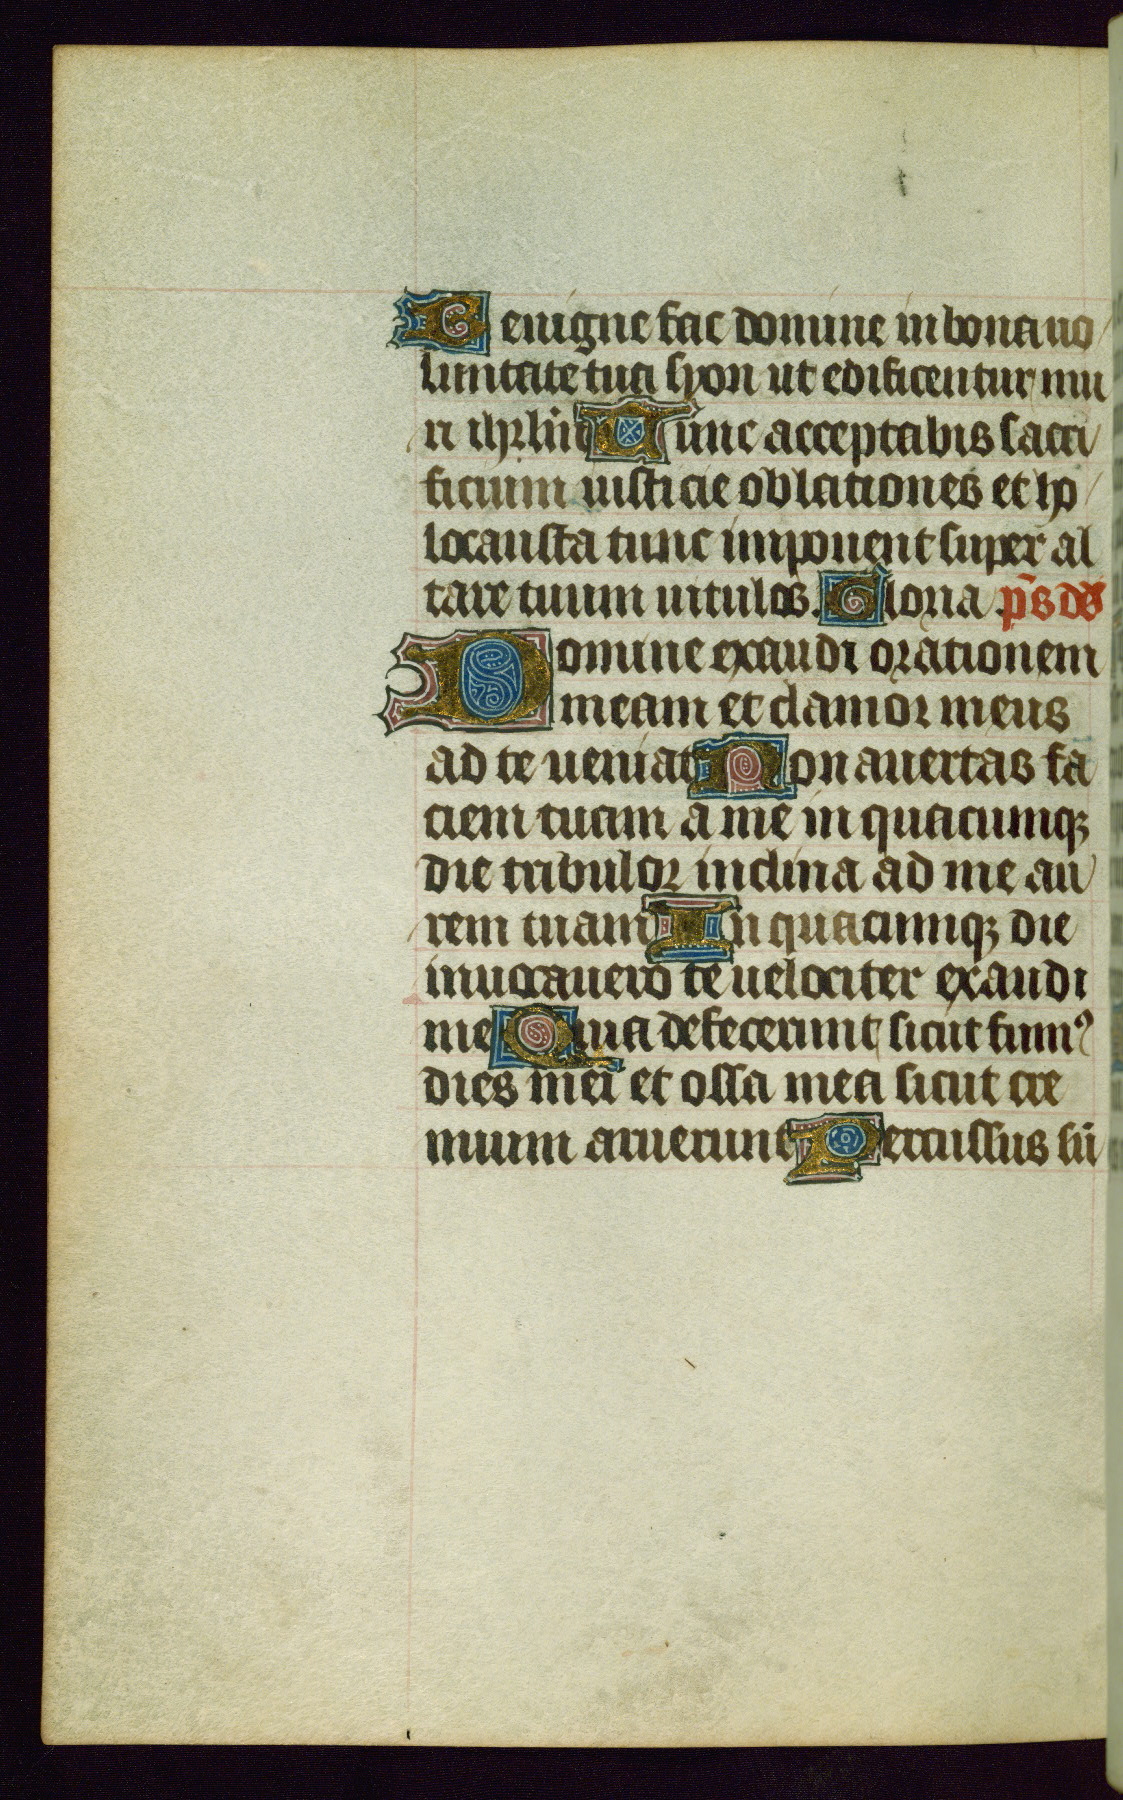 Benigne fac domine in bona uo
luntate tua syon ut edificentur mu
ri ihrlm̄ Tunc acceptabis sacri
ficium iusticie oblationes et ho
locausta tunc imponent super al
tare tuum uitulos. Gloria p̄s dd̄
Domine exaudi orationem
meam et clamor meus
ad te ueniat Non auertas fa
ciem tuam a me in quacumqꝫ
die tribulor inclina ad me au
rem tuam In quacumqꝫ die
inuocauero te uelociter exaudi
me Quia defecerunt sicut fumꝰ
dies mei et ossa mea sicut cre
mium aruerunt Percussus sū